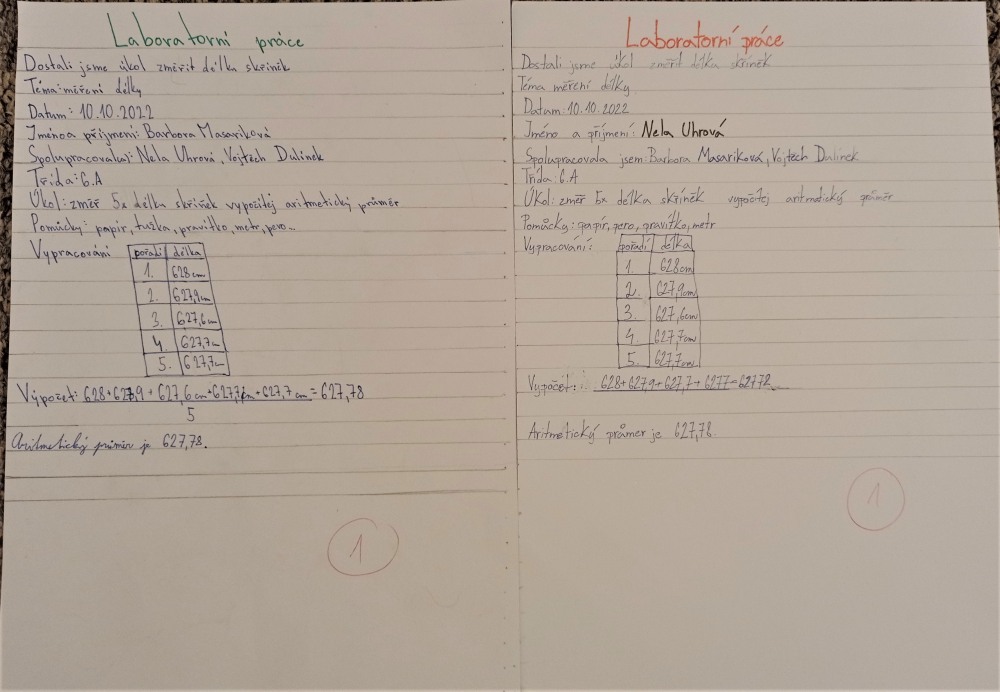 Laboratorní práce
Dostali jsme úkol změřit délka skříněk
Téma: měření délky
Datum: 10.10.2022
Jméno a příjmení: Barbora Masaříková
Spolupracoval(a): Nela Uhrová, Vojtěch Dulínek
Třída: 6.A
Úkol: změř 5x délka skříněk vypočítej aritmetický průměr
Pomůcky: papír, tužka, pravítko, metr, pero...
Vypracování
pořadí délka
1. 628cm
2. 627,9cm
3. 627,6cm
4. 627,7cm
5. 627,7cm
Výpočet: 628+627,9 + 627,6 cm+627,7cm+627,7 cm = 627,78
5
Aritmetický průměr je 627,78.
1
Laboratorní práce
Dostali jsme úkol změřit délka skříněk
Téma měření délky
Datum: 10.10.2022
Jméno a příjmení: Nela Uhrová
Spolupracovala jsem: Barbora Masaříková, Vojtěch Dulínek
Třída: 6.A
Úkol: změř 5x délka skříněk vypočítej aritmetický průměr
Pomůcky: papír, pero, pravítko, metr
Vypracování:
pořadí délka
1. 628cm
2. 627,9cm
3. 627,6cm
4. 627,7cm
5. 627,7cm
Vypočet: 628+627,9+627,7+6277=62772
Aritmetický průměr je 627,78.
1